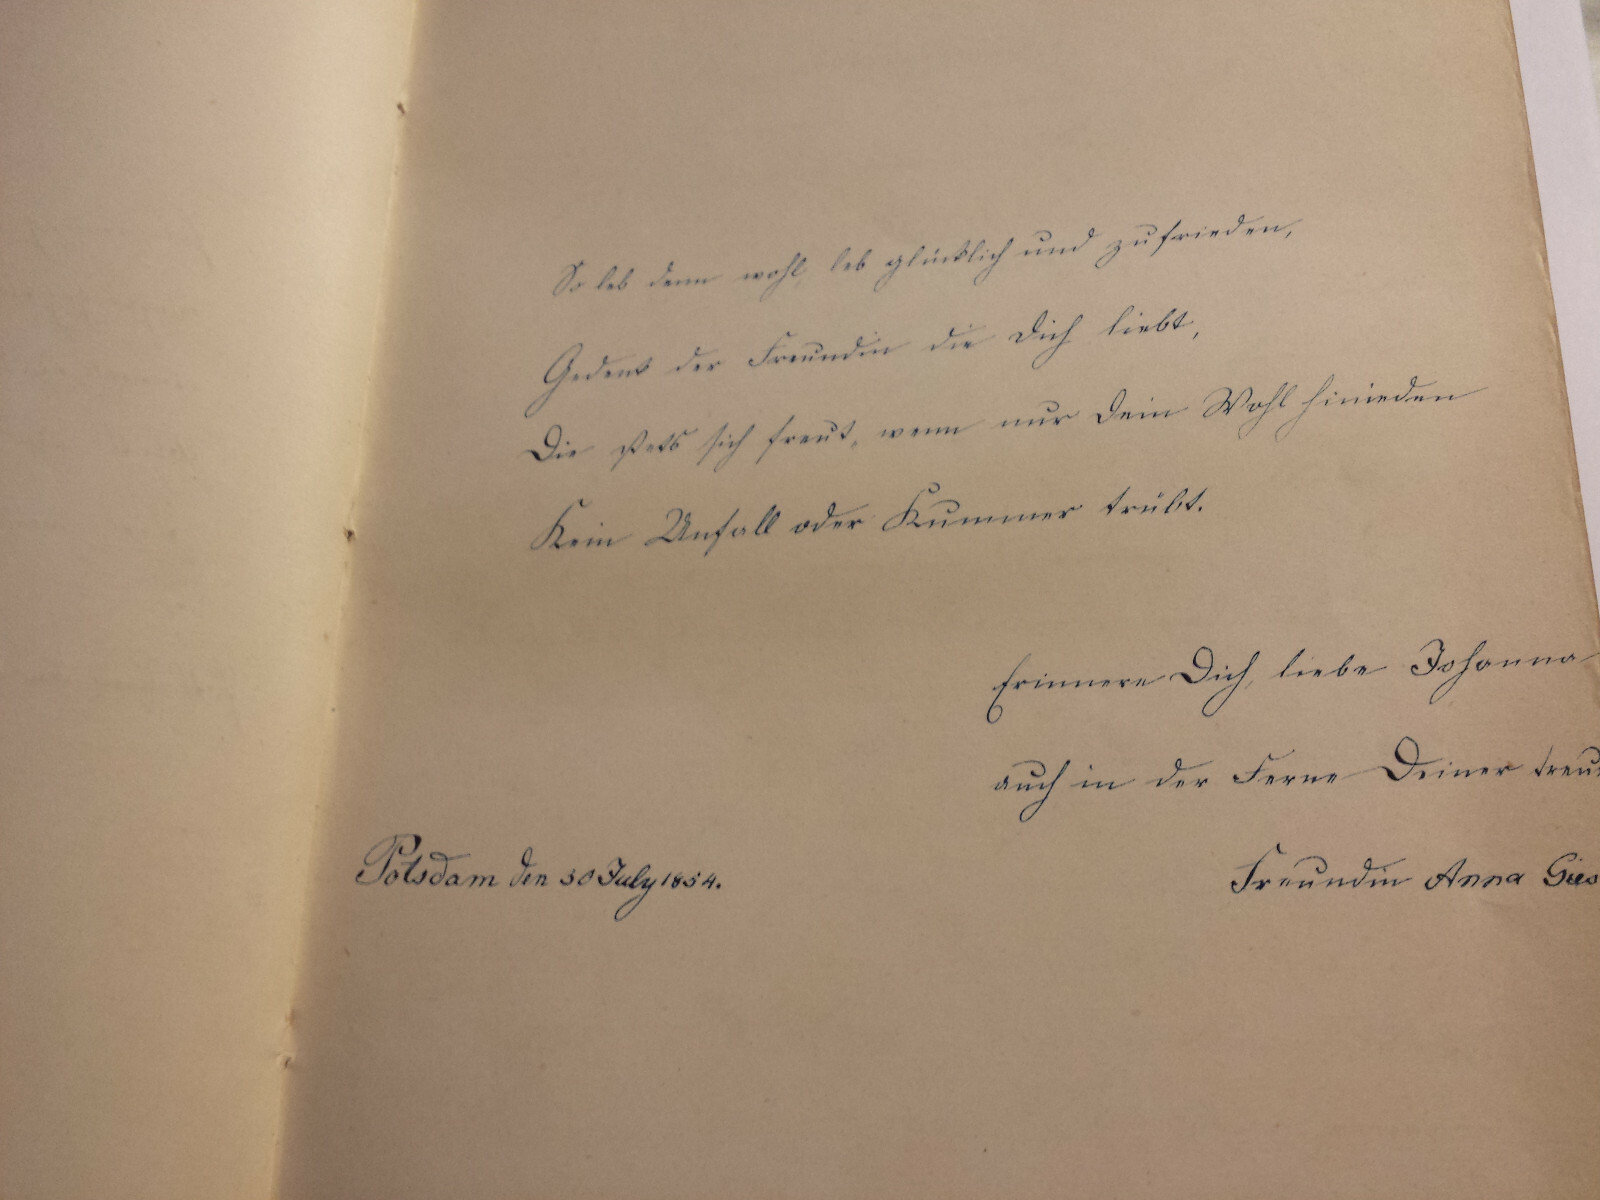 So leb denn wohl, leb glücklich und zufrieden,
Gedenk der Freundin die Dich liebt,
Die stets sich freut, wenn nur Dein Wohl hinieden
Kein Unfall oder Kummer trübt.
Erinnere Dich, liebe Johanna
auch in der Ferne Deiner treu
Potsdam den 30 July 1854.
Freundin Anna